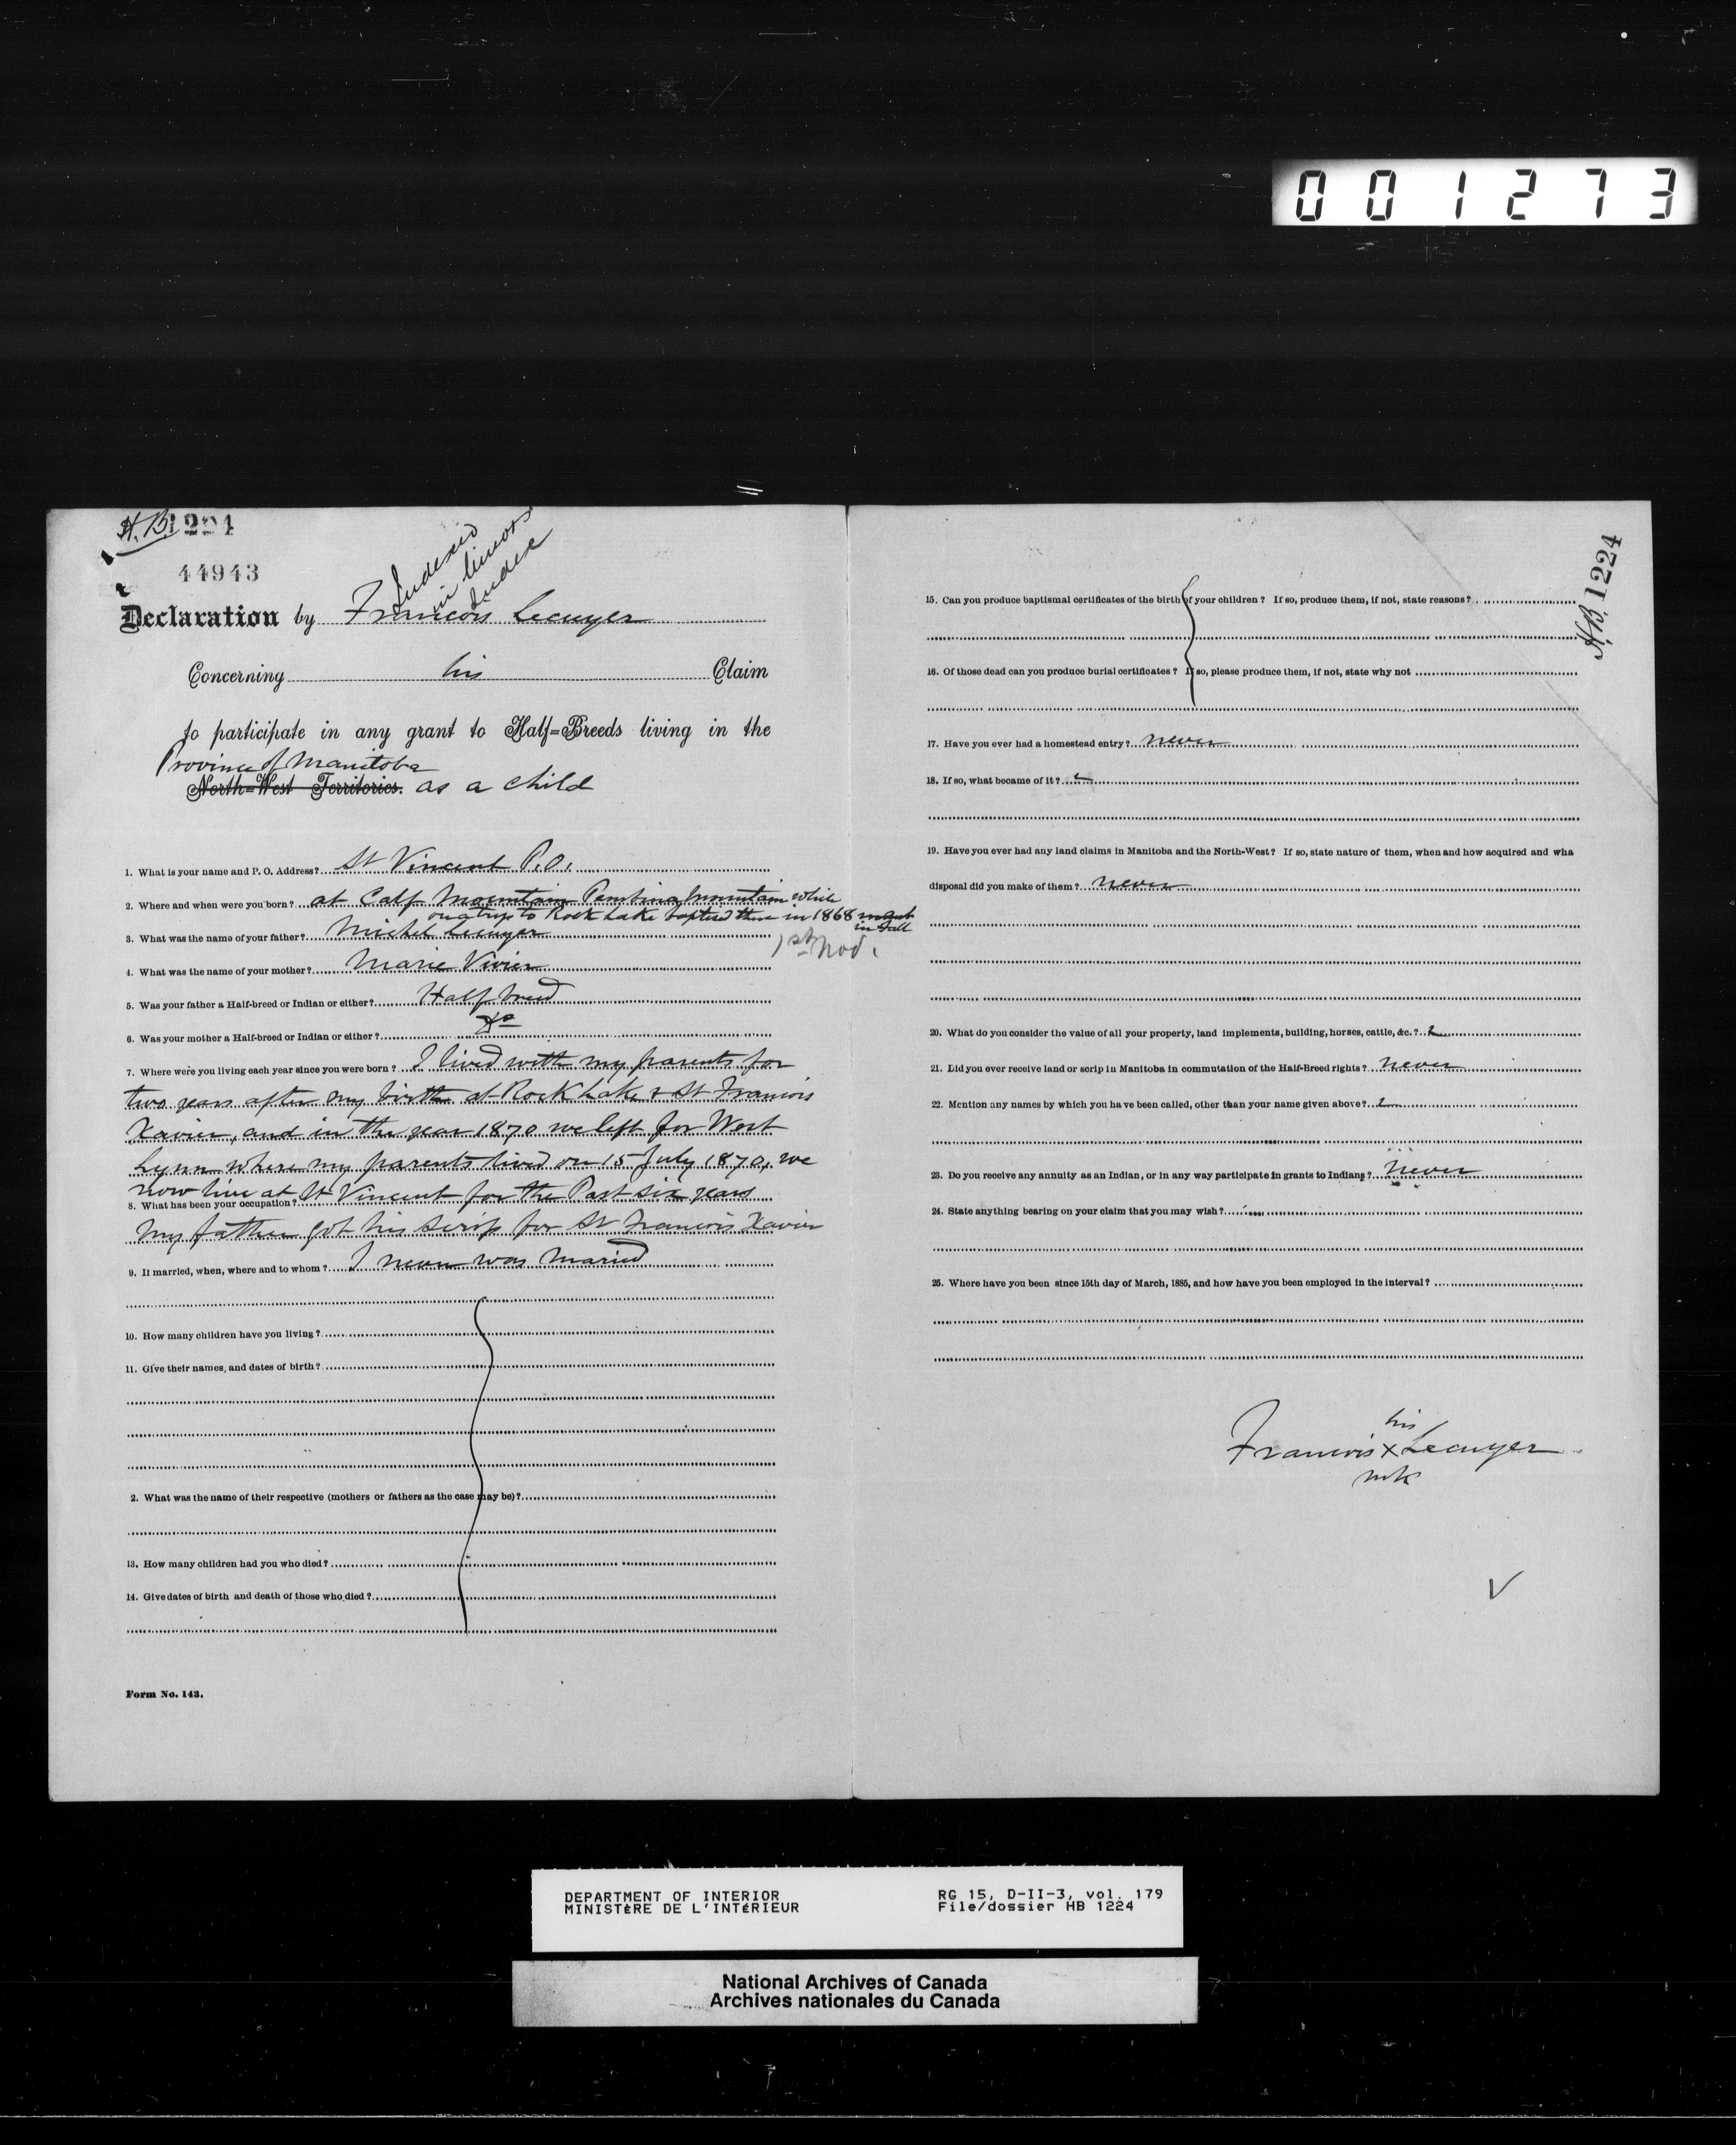 001273
H.B. 1224
44943
Indexed
in Minors
Index
Declaration by Francois Lecuyer
Concerning his Claim
to participate in any grant to Half=Breeds living in the
Province of Manitoba
North=West Territories. as a child
1. What is your name and P. O. Address? St Vincent P.O.
2. Where and when were you born? at Calf Mountain Pembina Mountain while
on a trip to Rock Lake baptised there in 1868
in Fall
3. What was the name of your father? Michel Lecuyer
1st Nov.
4. What was the name of your mother? Marie Vivier
5. Was your father a Half-breed or Indian or either? Half breed
6. Was your mother a Half-breed or Indian or either? Do
7. Where were you living each year since you were born? I lived with my parents for
two years after my birth at Rock Lake & St Francois
Xavier, and in the year 1870 we left for West
Lynn where my parents lived on 15 July 1870, we
now live at St Vincent for the Past six years
8. What has been your occupation?
My father got his scrip for St Francois Xavier
9. If married, when, where and to whom? I never was maried
10. How many children have you living?
11. Give their names, and dates of birth?
2. What was the name of their respective (mothers or fathers as the case may be)?
13. How many children had you who died?
14. Give dates of birth and death of those who died?
Form No. 143.
HB 1224
15. Can you produce baptismal certificates of the birth of your children? If so, produce them, if not, state reasons?
16. Of those dead can you produce burial certificates? If so, please produce them, if not, state why not
17. Have you ever had a homestead entry? never
18. If so, what became of it?
19. Have you ever had any land claims in Manitoba and the North-West? If so, state nature of them, when and how acquired and wha
disposal did you make of them? never
20. What do you consider the value of all your property, land implements, building, horses, cattle, &c.?
21. Did you ever receive land or scrip in Manitoba in commutation of the Half-Breed rights? never
22. Mention any names by which you have been called, other than your name given above?
23. Do you receive any annuity as an Indian, or in any way participate in grants to Indians? never
24. State anything bearing on your claim that you may wish?
25. Where have you been since 15th day of March, 1885, and how have you been employed in the interval?
his
Francois X Lecuyer
mk
DEPARTMENT OF INTERIOR
MINISTÈRE DE L'INTÉRIEUR
RG 15, D-II-3, vol. 179
File/dossier HB 1224
National Archives of Canada
Archives nationales du Canada